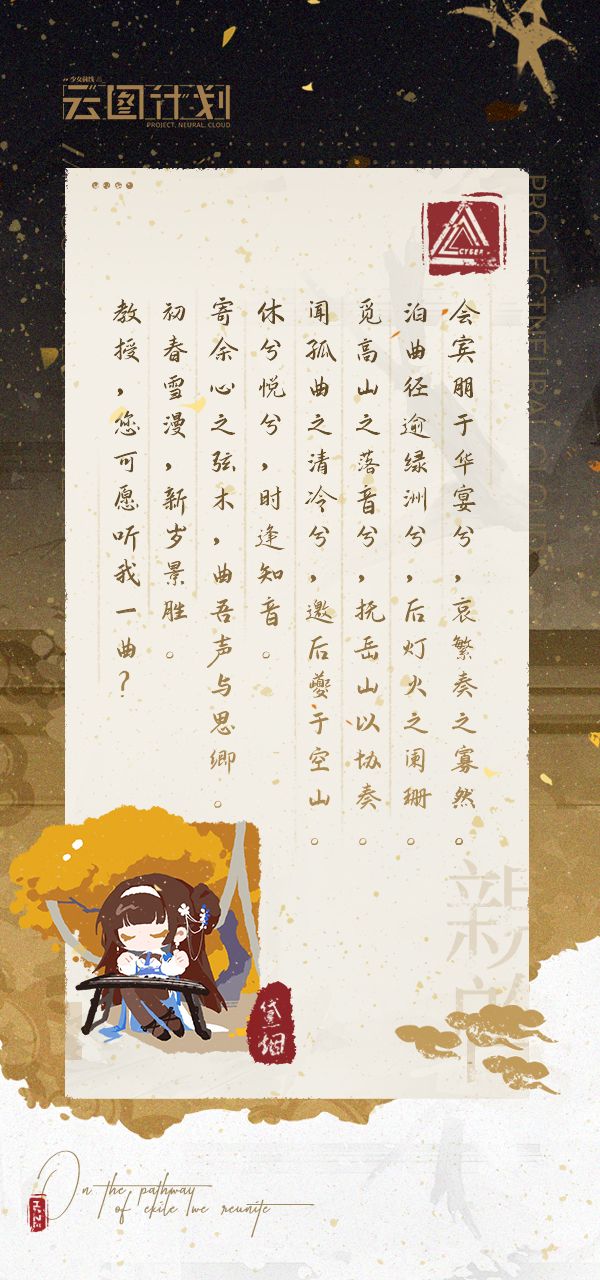 少女前线
云图计划
PROJECT. NEURAL. CLOUD
CYBER
PROJECTNEURALCLOUD
会宾朋于华宴兮，哀繁奏之寡然。
泊曲径逾绿洲兮，后灯火之阑珊。
觅高山之落音兮，抚岳山以协奏。
闻孤曲之清冷兮，邀后夔于空山。
休兮悦兮，时逢知音。
寄余心之弦木，曲吾声与思卿。
初春雪漫，新岁景胜。
教授，您可愿听我一曲？
黛烟
On the pathway
of exile we reunite